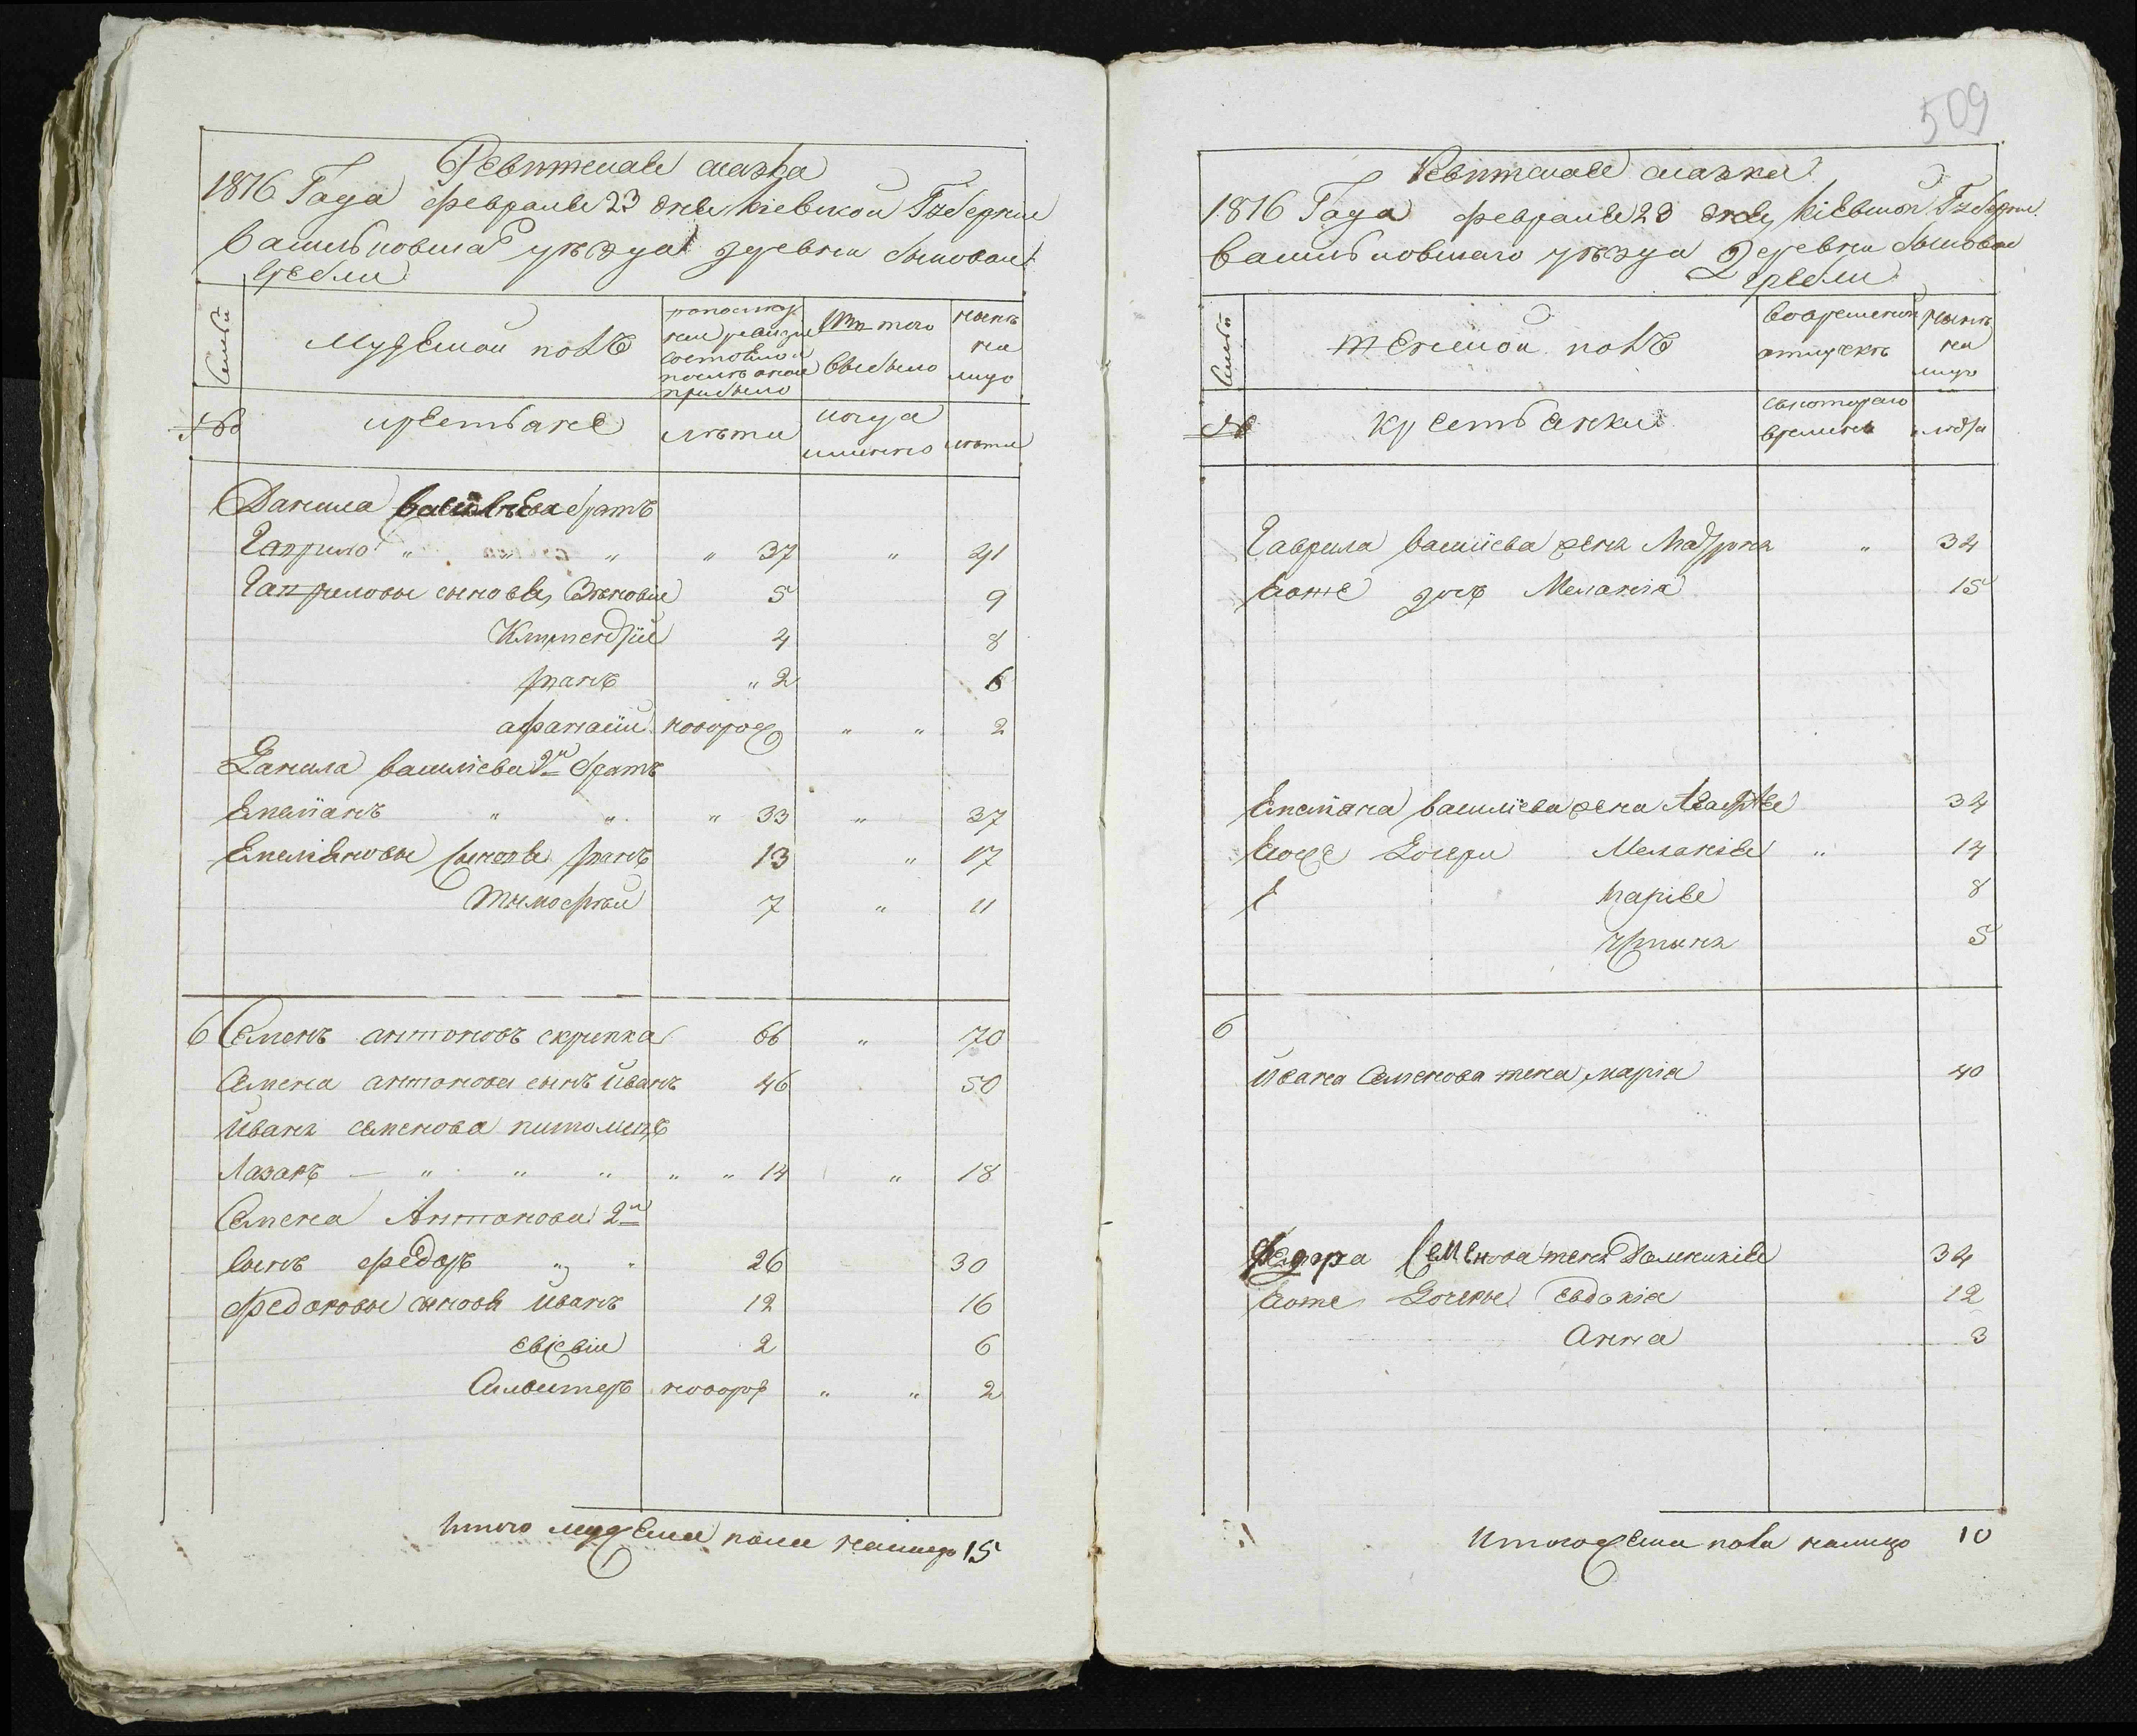 509
Ревижская сказка
1816 Года февраля 23 дня Кіевской Губерніи
Васильковскаго уѣзда деревни Быковой
Гребли
Семьи
Мужеской полъ
по последней ревизіи состояло и послѣ оной прибыло
Изъ того выбыло
нынѣ на лицо
№
крестьяне
лѣты
когда именно
лѣты
Данила Василіева братъ
Гаврило " " " " 37 " 41
Гавриловы сыновья Зѣновій 5 9
4 8
Иванъ " 2 6
афанасій новорож " " 2
Данила василіева 2й братъ
Емеліанъ " " " 33 " 37
Емеліановы сыновья Иванъ 13 " 17
Тимофѣй 7 " 11
6 Семенъ антоновъ скрипка 66 " 70
Семена антонова сынъ Иванъ 46 50
Ивана семенова питомецъ
Лазаръ — " " " " " 14 " 18
Семена Антонова 2й
сынъ федоръ " " 26 30
федоровы сыновя Иванъ 12 16
евсевій 2 6
Силвестеръ новорож " " 2
Итого мужеска пола налицо 15
Ревижская сказка
1816 Года февраля 23 дня Кіевской Губерніи
Васильковскаго уѣзда Деревни Быковой
гребли
Семьи
женской полъ
Во временной отлучкѣ
нынѣ на лицо
№
крестьянки
съ котораго времени
лѣта
Гаврила Василіева жена Мадрона " 34
Егоже дочь Меланія 15
Емеліана василіева жена 34
Егоже Дочери Меланія " 14
Марія 8
Устина 5
6
Ивана Семенова жена марія 40
Федора Семенова жена Домникія 34
Егоже Дочеры Евдокія 12
Анна 3
Итого женска пола налицо 10